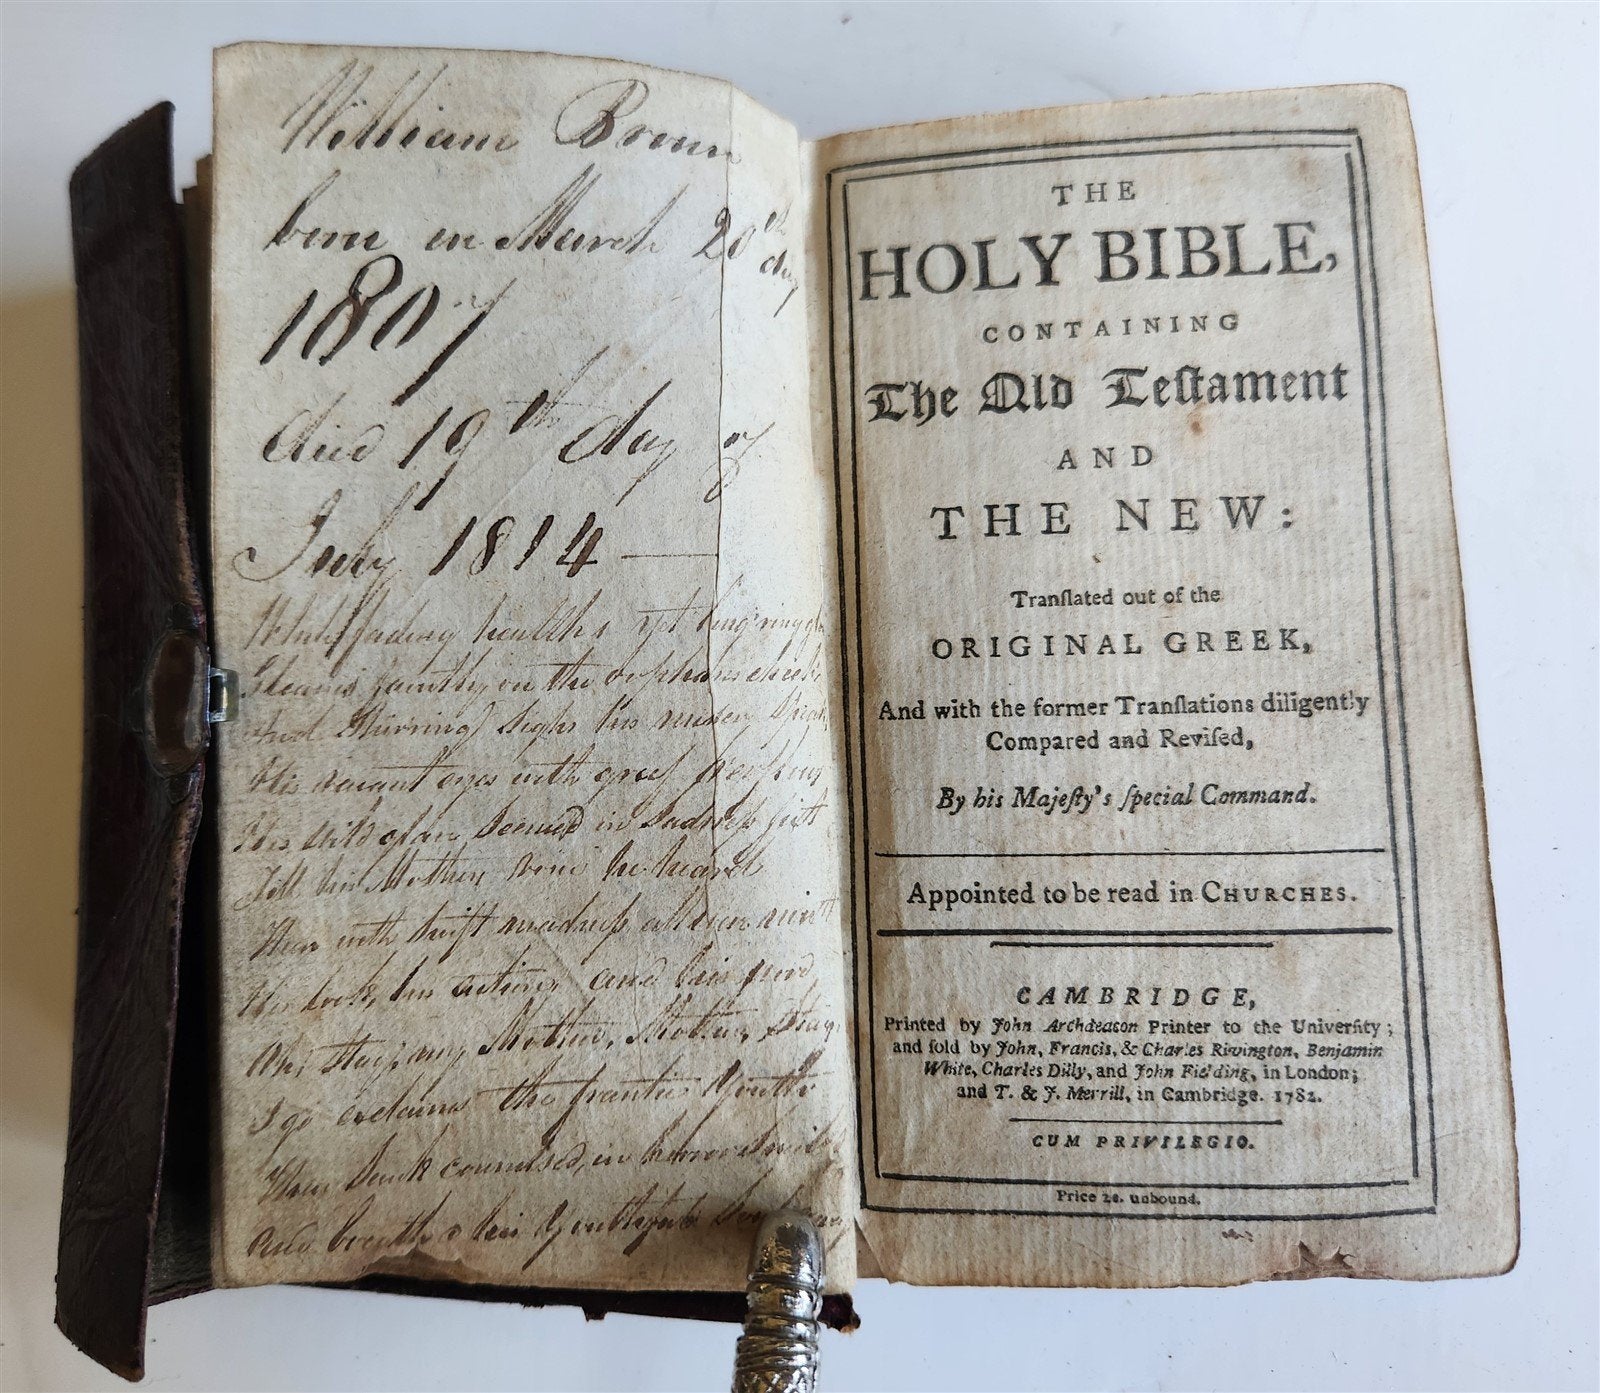 William Brown
born in March 20th day
1807
died 19th day of
July 1814
fading health's yet ling'ring
Gleams faintly on the orphans cheek
And sighs his
His vacant eyes with grief
His wild seemed in sadneſs
Till his Mothers voice he heard
Then with swift madneſs
His look, his actions and his
Oh, stay my Mother, Mother, Stay
I go exclaims the frantic Youth
Then sunk in horror
and his Youthful
THE
HOLY BIBLE,
CONTAINING
The Old Teſtament
AND
THE NEW:
Tranſlated out of the
ORIGINAL GREEK,
And with the former Tranſlations diligently
Compared and Reviſed,
By his Majeſty's ſpecial Command.
Appointed to be read in CHURCHES.
CAMBRIDGE,
Printed by John Archdeacon Printer to the Univerſity;
and ſold by John, Francis, & Charles Rivington, Benjamin
White, Charles Dilly, and John Fielding, in London;
and T. & J. Merrill, in Cambridge. 1782.
CUM PRIVILEGIO.
Price 2s. unbound.